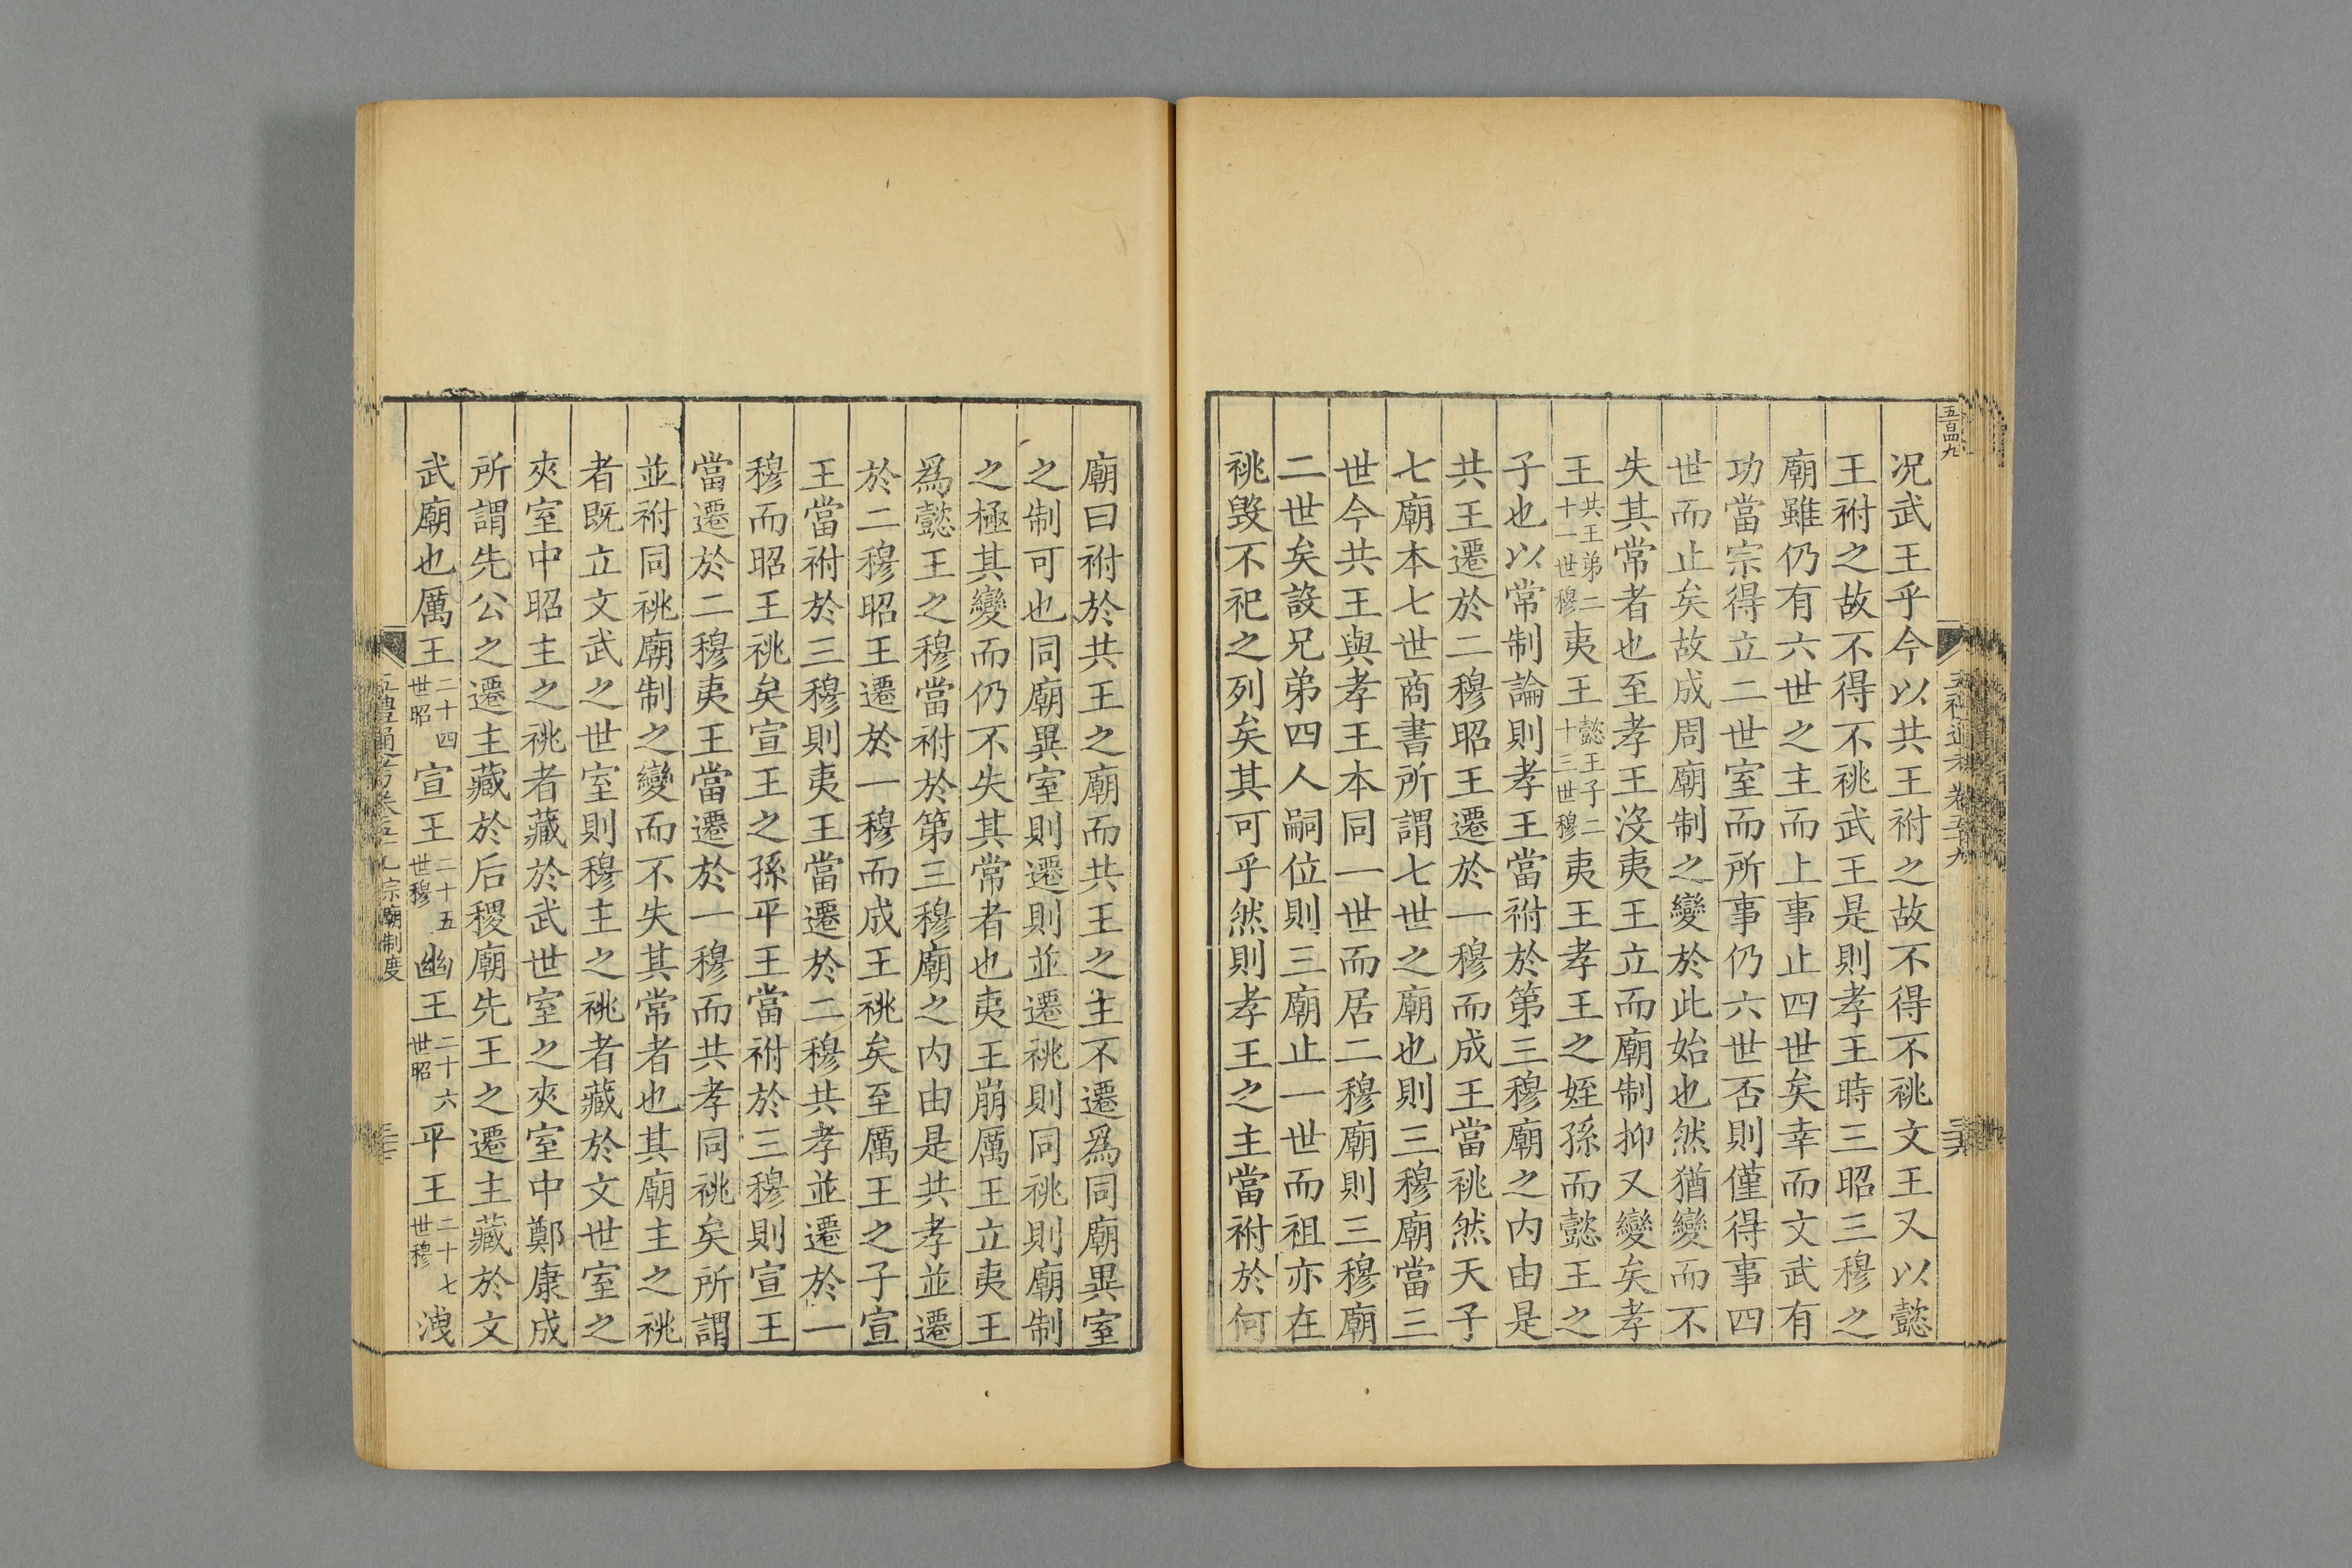 五百四九
五禮通考卷五十九
况武王乎今以共王祔之故不得不祧文王又以懿
王祔之故不得不祧武王是則孝王時三昭三穆之
廟雖仍有六世之主而上事止四世矣幸而文武有
功當宗得立二世室而所事仍六世否則僅得事四
世而止矣故成周廟制之變於此始也然猶變而不
失其常者也至孝王沒夷王立而廟制抑又變矣孝
王共王弟二十一世穆夷王懿王子二十三世穆夷王孝王之姪孫而懿王之
子也以常制論則孝王當祔於第三穆廟之内由是
共王遷於二穆昭王遷於一穆而成王當祧然天子
七廟本七世商書所謂七世之廟也則三穆廟當三
世今共王與孝王本同一世而居二穆廟則三穆廟
二世矣設兄弟四人嗣位則三廟止一世而祖亦在
祧毁不祀之列矣其可乎然則孝王之主當祔於何
廟曰祔於共王之廟而共王之主不遷爲同廟異室
之制可也同廟異室則遷則並遷祧則同祧則廟制
之極其變而仍不失其常者也夷王崩厲王立夷王
爲懿王之穆當祔於第三穆廟之内由是共孝並遷
於二穆昭王遷於一穆而成王祧矣至厲王之子宣
王當祔於三穆則夷王當遷於二穆共孝並遷於一
穆而昭王祧矣宣王之孫平王當祔於三穆則宣王
當遷於二穆夷王當遷於一穆而共孝同祧矣所謂
並祔同祧廟制之變而不失其常者也其廟主之祧
者既立文武之世室則穆主之祧者藏於文世室之
夾室中昭主之祧者藏於武世室之夾室中鄭康成
所謂先公之遷主藏於后稷廟先王之遷主藏於文
武廟也厲王二十四世昭宣王二十五世穆幽王二十六世昭平王二十七世穆洩
五禮通考卷五十九宗廟制度